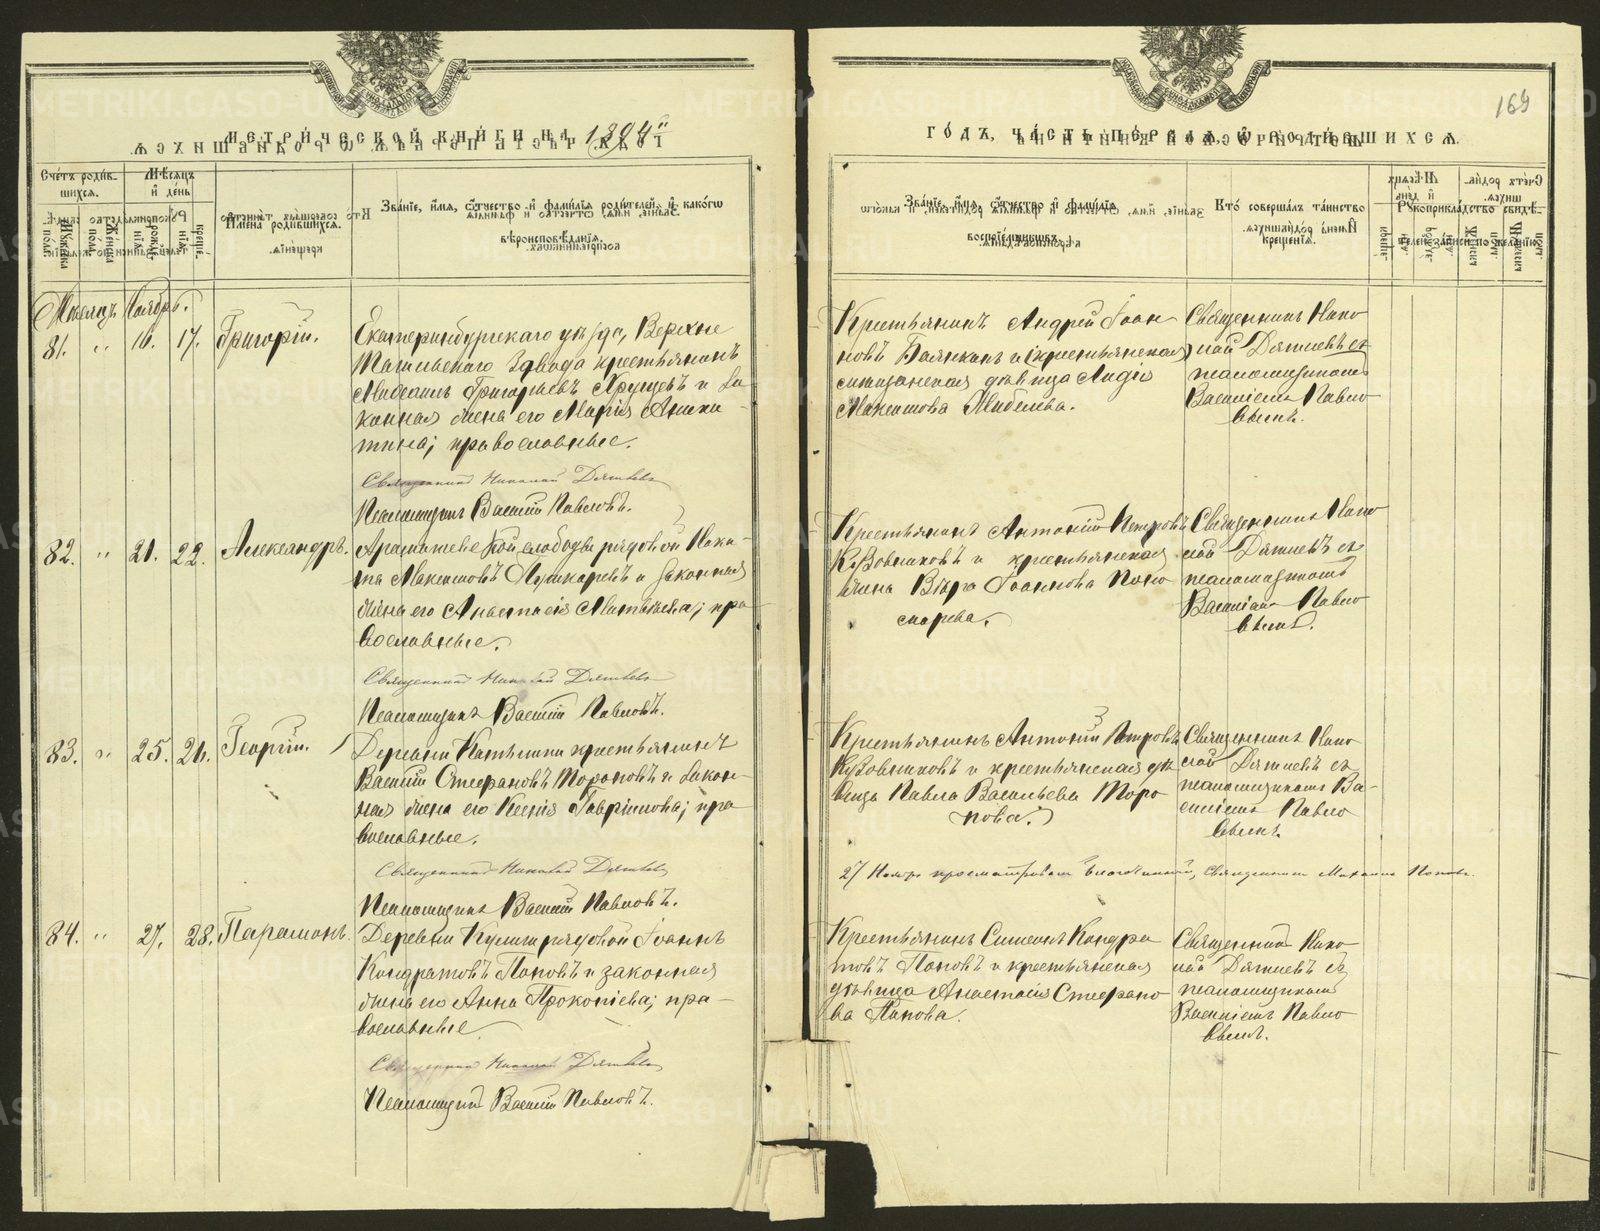 169
МЕТРИ́ЧЕСКОЙ КНИ́ГИ НА 1894й
ГО́ДЪ, ЧА́СТЬ ПЕ́РВАЯ, Ѡ РОДИ́ВШИХСЯ.
Сче́тъ роди́в-
шихся.
Мѣ́сяцъ
и́ день
Мужеска
полъ.
Женска
полъ.
рождє-
нїя.
креще-
нїя.
И҆мена̀ роди́вшихся.
Зва́нїе, и҆́мя, ѻ҆́тчество и҆ фами́лїя роди́телей, и҆ како́гѡ
вѣроисповѣ́данїя.
Зва́нїе, и҆́мя, ѻ҆́тчество и҆ фами́лїя
воспрїе́мниковъ.
Кто̀ соверша́лъ та́инство
креще́нїя.
Рꙋкоприкла́дство свидѣ́-
телей за́писи по жела́нїю.
Мѣсяцъ Ноябрь.
81. „ 16. 17. Григорій.
Екатеринбургскаго уѣзда, Верхне
Тагильскаго Завода крестьянинъ
Григорьевъ Хрущевъ и за-
конная жена его Марія Аники-
тина; православные.
Священникъ Николай Дягилевъ
Псаломщикъ Василій Павловъ.
Крестьянинъ Андрей Іоан-
новъ и крестьянская
дѣвица Лидія
Максимова
Священникъ Нико-
лай Дягилевъ съ
псаломщикомъ
Василіемъ Павло-
вымъ.
82. „ 21. 22. Александръ.
Арамашевской слободы рядовой Ники-
та Максимовъ Пушкаревъ и законная
жена его Анастасія Матвѣева; пра-
вославные.
Священникъ Николай Дягилевъ
Псаломщикъ Василій Павловъ.
Крестьянинъ Антоній Петровъ
Кузовниковъ и крестьянская
жена Вѣра Іоаннова Поно-
марева.
Священникъ Нико-
лай Дягилевъ съ
псаломщикомъ
Василіемъ Павло-
вымъ.
83. „ 25. 26. Георгій.
Деревни Катышки крестьянинъ
Василій Стефановъ Тороповъ и закон-
ная жена его Ксенія Гавріилова; пра-
вославные.
Священникъ Николай Дягилевъ
Псаломщикъ Василій Павловъ.
Крестьянинъ Антоній Петровъ
Кузовниковъ и крестьянская дѣ-
вица Павла Васильева Торо-
пова.
Священникъ Нико-
лай Дягилевъ съ
псаломщикомъ Ва-
силіемъ Павло-
вымъ.
27 Ноября просматривалъ Благочинный, Священникъ Михаилъ Поповъ.
84. „ 27. 28. Парамонъ.
Деревни Кулиги рядовой Іоаннъ
Кондратовъ Поповъ и законная
жена его Анна Прокопіева; пра-
вославные.
Священникъ Николай Дягилевъ
Псаломщикъ Василій Павловъ.
Крестьянинъ Симеонъ Кондра-
товъ Поповъ и крестьянская
дѣвица Анастасія Стефано-
ва Попова.
Священникъ Нико-
лай Дягилевъ съ
псаломщикомъ
Василіемъ Павло-
вымъ.